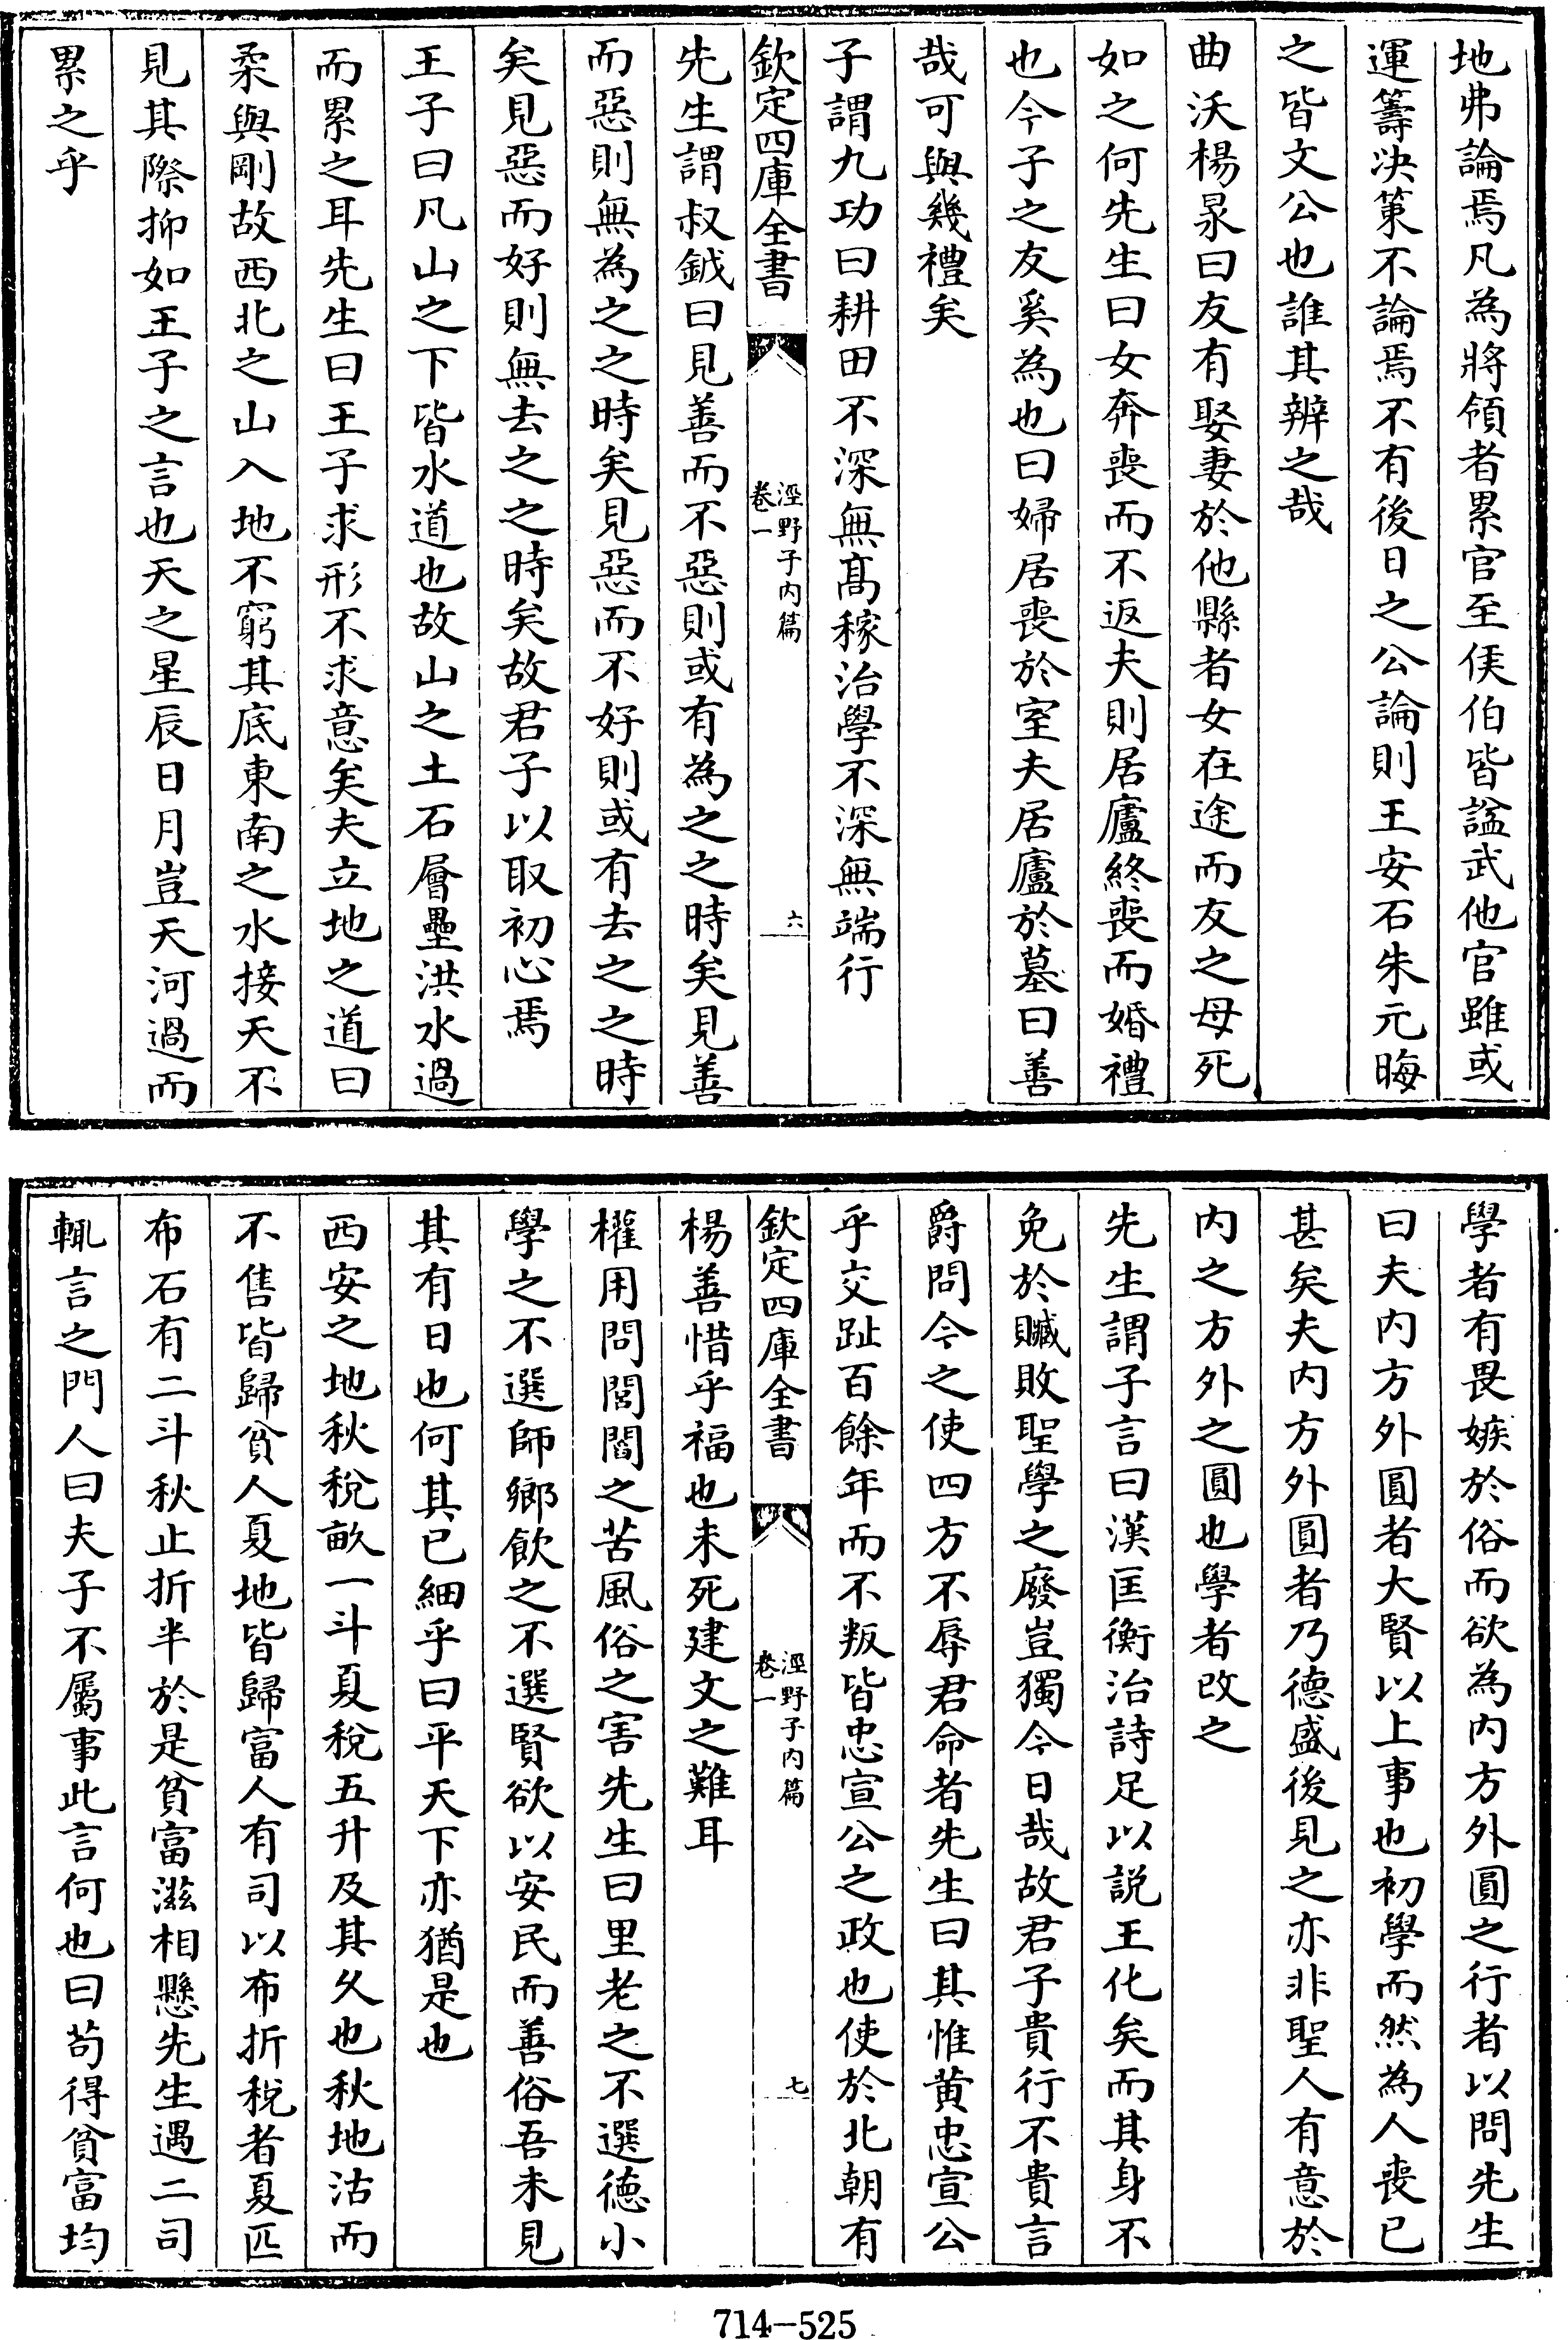 地弗論焉凡為將領者累官至侯伯皆諡武他官雖或
運籌決策不論焉不有後日之公論則王安石朱元晦
之皆文公也誰其辨之哉
曲沃楊㫤曰友有娶妻於他縣者女在途而友之母死
如之何先生曰女奔喪而不返夫則居廬終喪而婚禮
也今子之友奚為也曰婦居喪於室夫居廬於墓曰善
哉可與幾禮矣
子謂九功曰耕田不深無髙稼治學不深無端行
欽定四庫全書
涇野子內篇
卷一
六
先生謂叔鉞曰見善而不惡則或有為之之時矣見善
而惡則無為之之時矣見惡而不好則或有去之之時
矣見惡而好則無去之之時矣故君子以取初心焉
王子曰凡山之下皆水道也故山之土石層壘洪水過
而累之耳先生曰王子求形不求意矣夫立地之道曰
柔與剛故西北之山入地不窮其底東南之水接天不
見其際抑如王子之言也天之星辰日月豈天河過而
累之乎
學者有畏嫉於俗而欲為內方外圓之行者以問先生
曰夫內方外圓者大賢以上事也初學而然為人喪已
甚矣夫內方外圓者乃德盛後見之亦非聖人有意於
內之方外之圓也學者改之
先生謂子言曰漢匡衡治詩足以説王化矣而其身不
免於贓敗聖學之廢豈獨今日哉故君子貴行不貴言
爵問今之使四方不辱君命者先生曰其惟黄忠宣公
乎交趾百餘年而不叛皆忠宣公之政也使於北朝有
欽定四庫全書
涇野子內篇
卷一
七
楊善惜乎福也未死建文之難耳
權用問閭閻之苦風俗之害先生曰里老之不選德小
學之不選師鄉飲之不選賢欲以安民而善俗吾未見
其有日也何其已細乎曰平天下亦猶是也
西安之地秋稅畝一斗夏稅五升及其久也秋地沽而
不售皆歸貧人夏地皆歸富人有司以布折稅者夏匹
布石有二斗秋止折半於是貧富滋相懸先生遇二司
輒言之門人曰夫子不屬事此言何也曰苟得貧富均
714—525